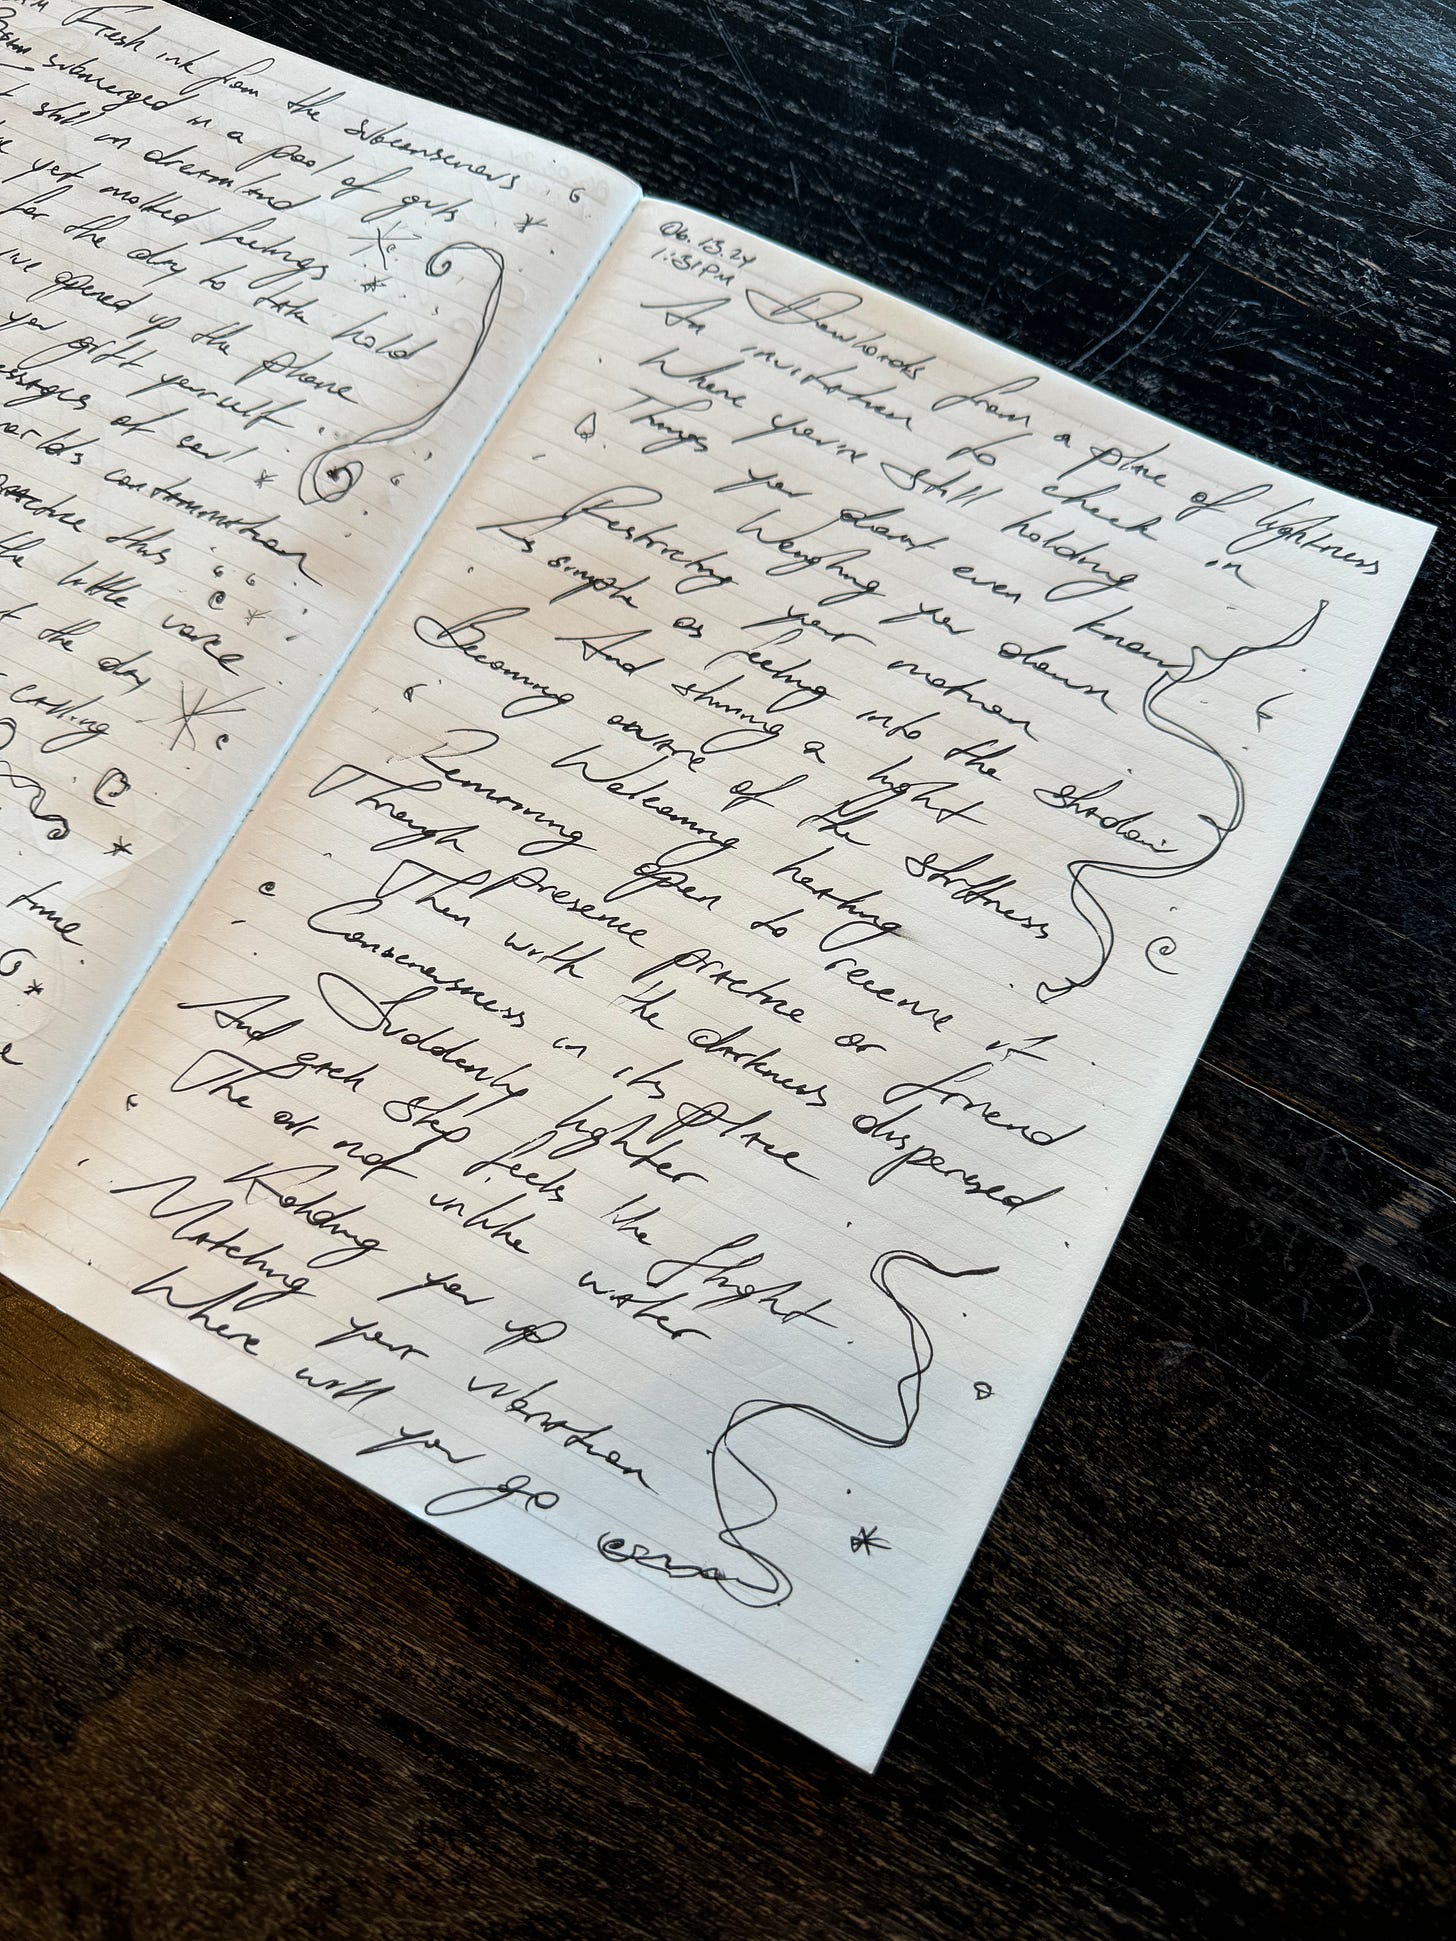 Fresh ink from the subconscious
submerged in a pool of guts
still in dreamland
yet molted feelings
for the day to take hold
opened up the phone
you gift yourself
of soul
contamination
practice this
the little voice
the day
calling
time
06.13.24
1:31PM
Downloads from a place of lightness
An invitation to check in
Where you're still holding
Things you dont even know
Weighing you down
Restricting your motion
As simple as feeling into the shadow
And shining a light
Becoming aware of the stiffness
Welcoming healing
Remaining open to receive it
Through presence practice or friend
Then with the darkness dispersed
Consciousness in its place
Suddenly lighter
And each step feels like flight
The air not unlike water
Holding you up
Matching your vibration
Where will you go